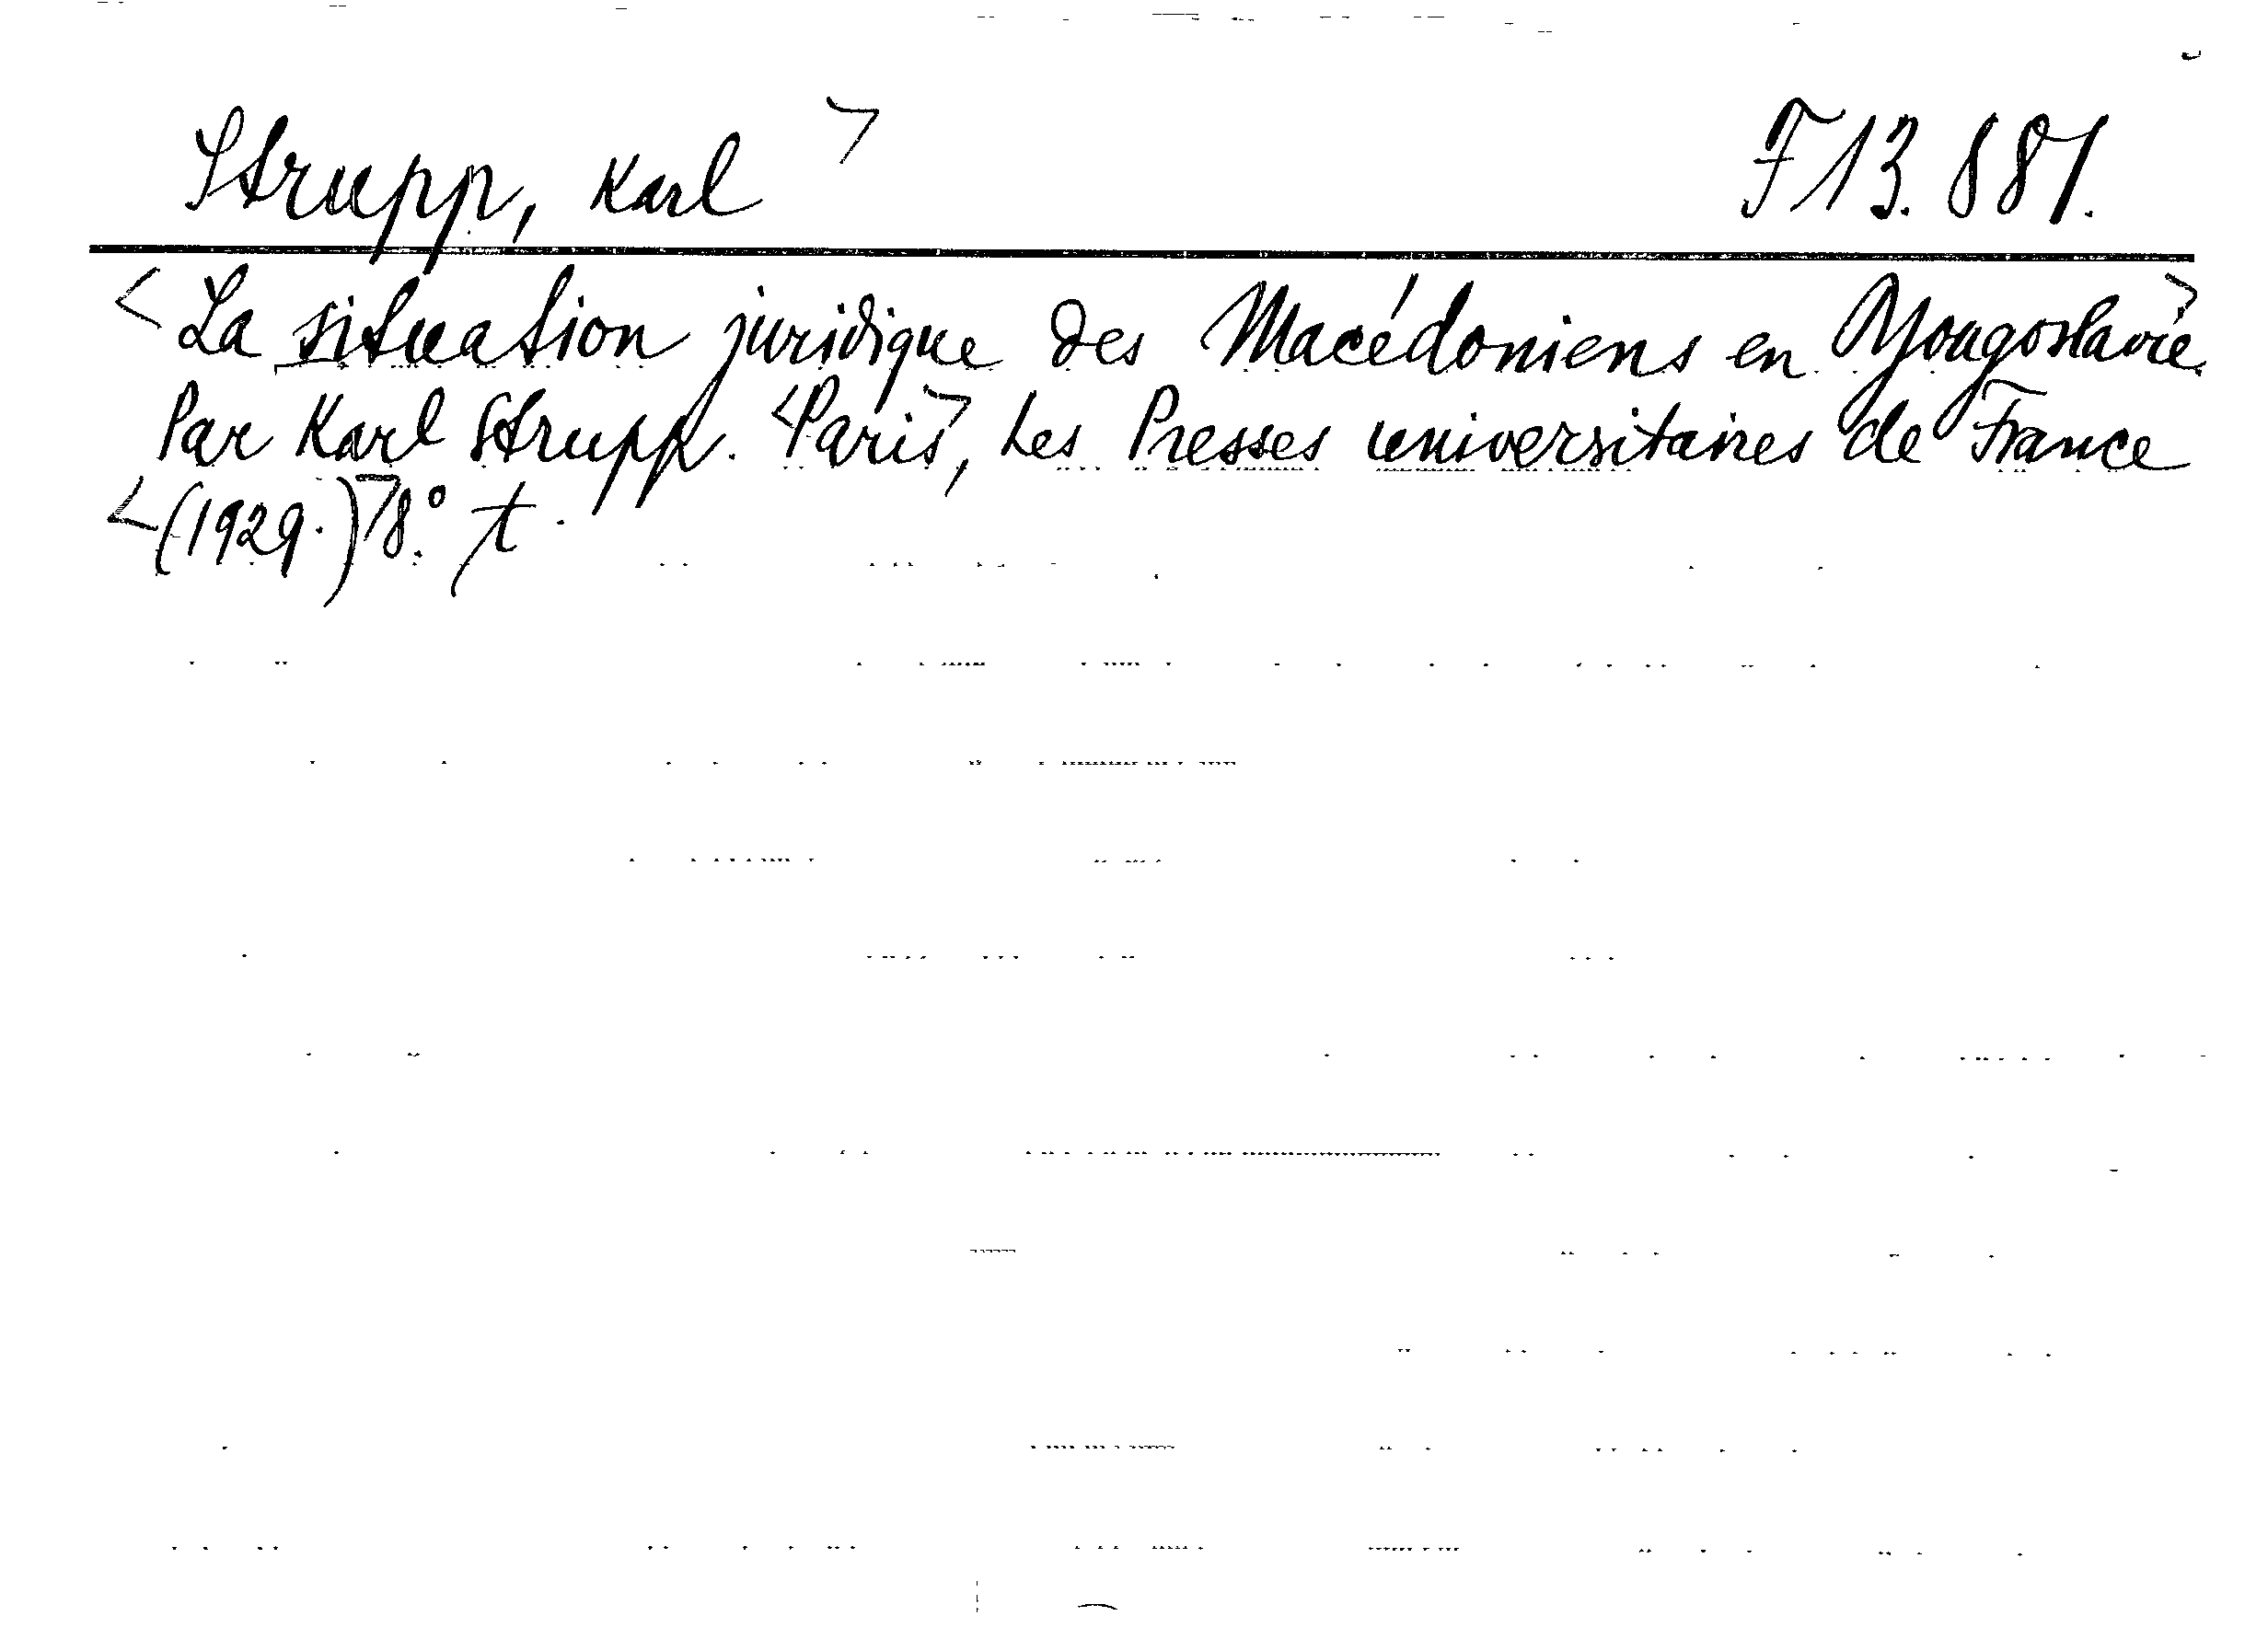 Strupp, Karl > F 13.887.
<La situation juridique des Macédoniens en Yougoslavie.>
Par Karl Strupp. <Paris>, Les Presses universitaires de France
<(1929.)> 8.° t.